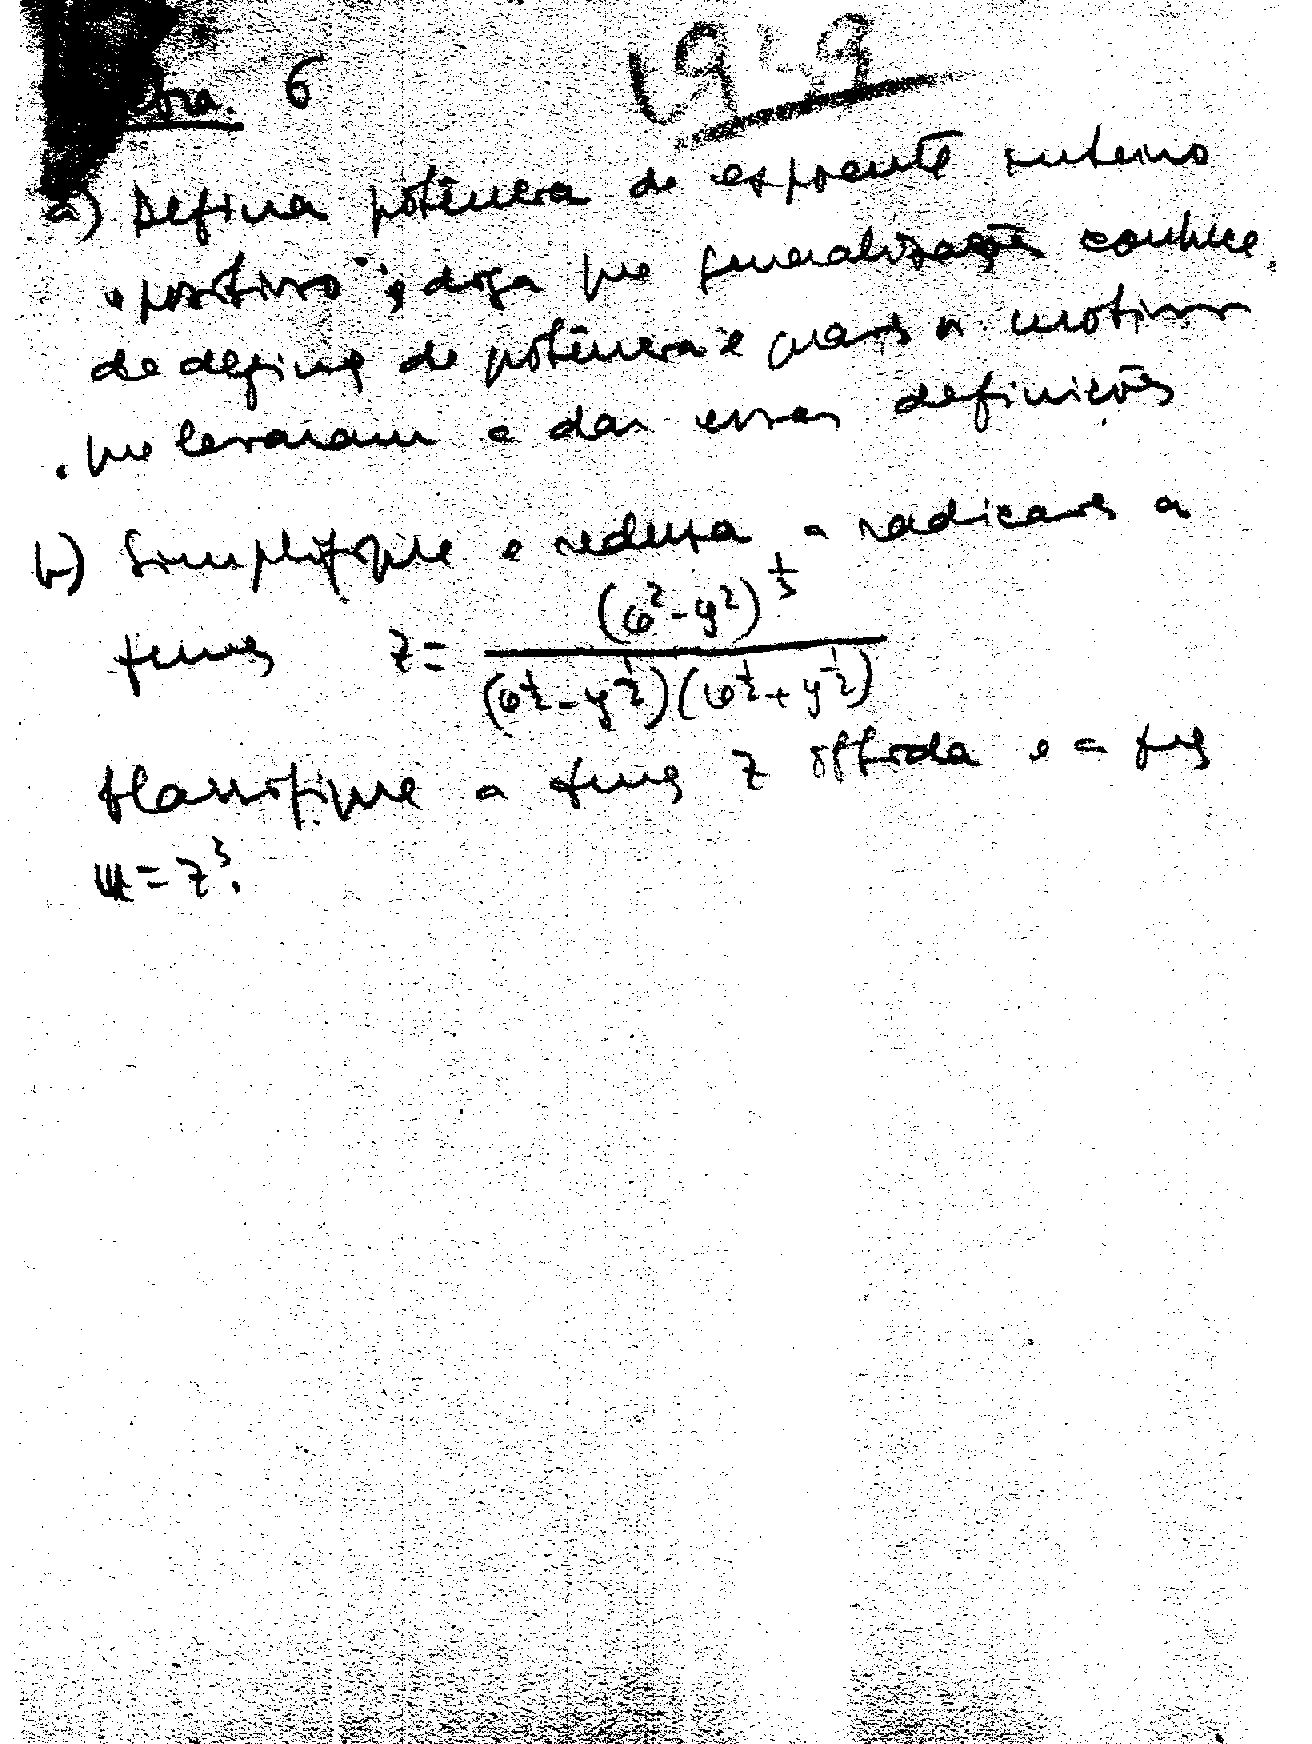 6
a) Defina potência de expoente inteiro
positivo; diga que generalizações conhece
de define de potência e quais os motivos
que levaram a dar essas definições
b) Simplifique e reduza a radicais a
função z = \frac{(x^2 - y^2)^{\frac{1}{3}}}{(x^{\frac{1}{2}} - y^{\frac{1}{2}})(x^{\frac{1}{2}} + y^{\frac{1}{2}})}
Classifique a função z obtida e a função
u = z^3.